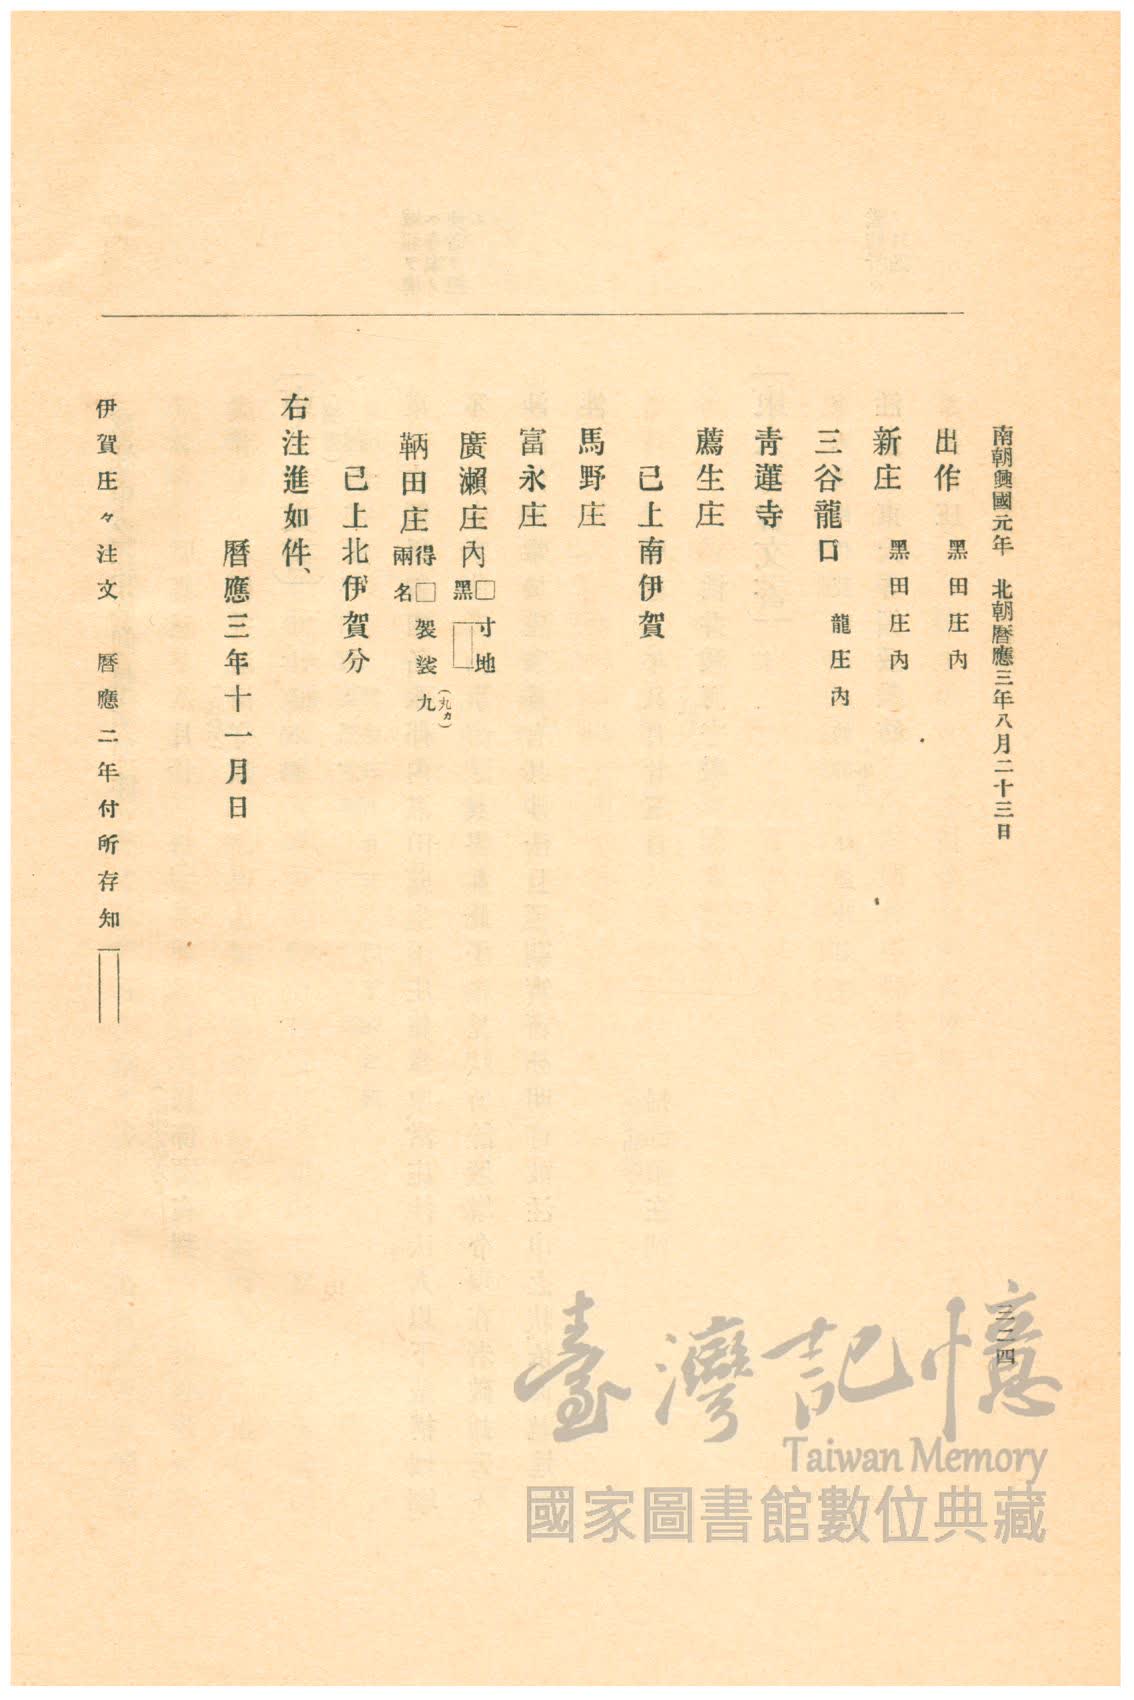 南朝興國元年　北朝曆應三年八月二十三日
三二四
出作　黑田庄內
新庄　黑田庄內
三谷龍口　龍庄內
青蓮寺
薦生庄
已上南伊賀
馬野庄
富永庄
廣瀨庄內 □寸地 黑□
鞆田庄 得□袈裟九(丸カ) 兩名
已上北伊賀分
右注進如件、
曆應三年十一月日
伊賀庄々注文　曆應二年付所存知□
臺灣記憶
Taiwan Memory
國家圖書館數位典藏